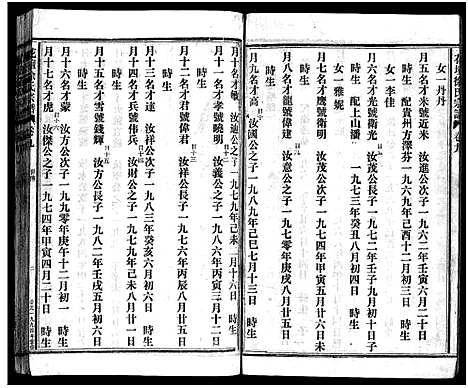 花園徐氏宗譜 卷九
女一丹丹
月五名才米號近米 汝進公次子一九六六年五月二十日 時生
配貴州方澤芬 一九六九年己酉十二月初三日 時生
女一李佳
月六名才光號觀光 汝茂公長子一九七二年壬子九月初十日子時生
配上山潘 一九七三年癸丑八月初四日 時生
女一雅妮
月七名才鷹號衛明 汝茂公次子一九七四年甲寅五月初六日 時生
月八名才龍號偉建 汝意公之子一九七〇年庚戌八月廿五日 時生
月九名才高 汝國公之子一九八九年己巳七月十三日 時生
月十名才敏 汝迪公之子一九七九年己未二月十六日 時生
月十一名才孝號曉明 汝義公之子一九八六年丙寅三月十二日 時生
月十二名才君號偉君 汝祥公長子一九七六年丙辰八月 時生
月十三名才達 汝祥公次子一九八三年癸亥六月初六日 時生
月十四名才兵號偉兵 汝財公之子一九七九年己未八月廿一日 時生
月十五名才雪號錢輝 汝方公長子一九八二年壬戌五月初六日 時生
月十六名才蒙 汝方公次子一九九〇年庚午十二月初一 時生
月十七名才虎 汝傑公之子一九七四年甲寅四月二十日 時生